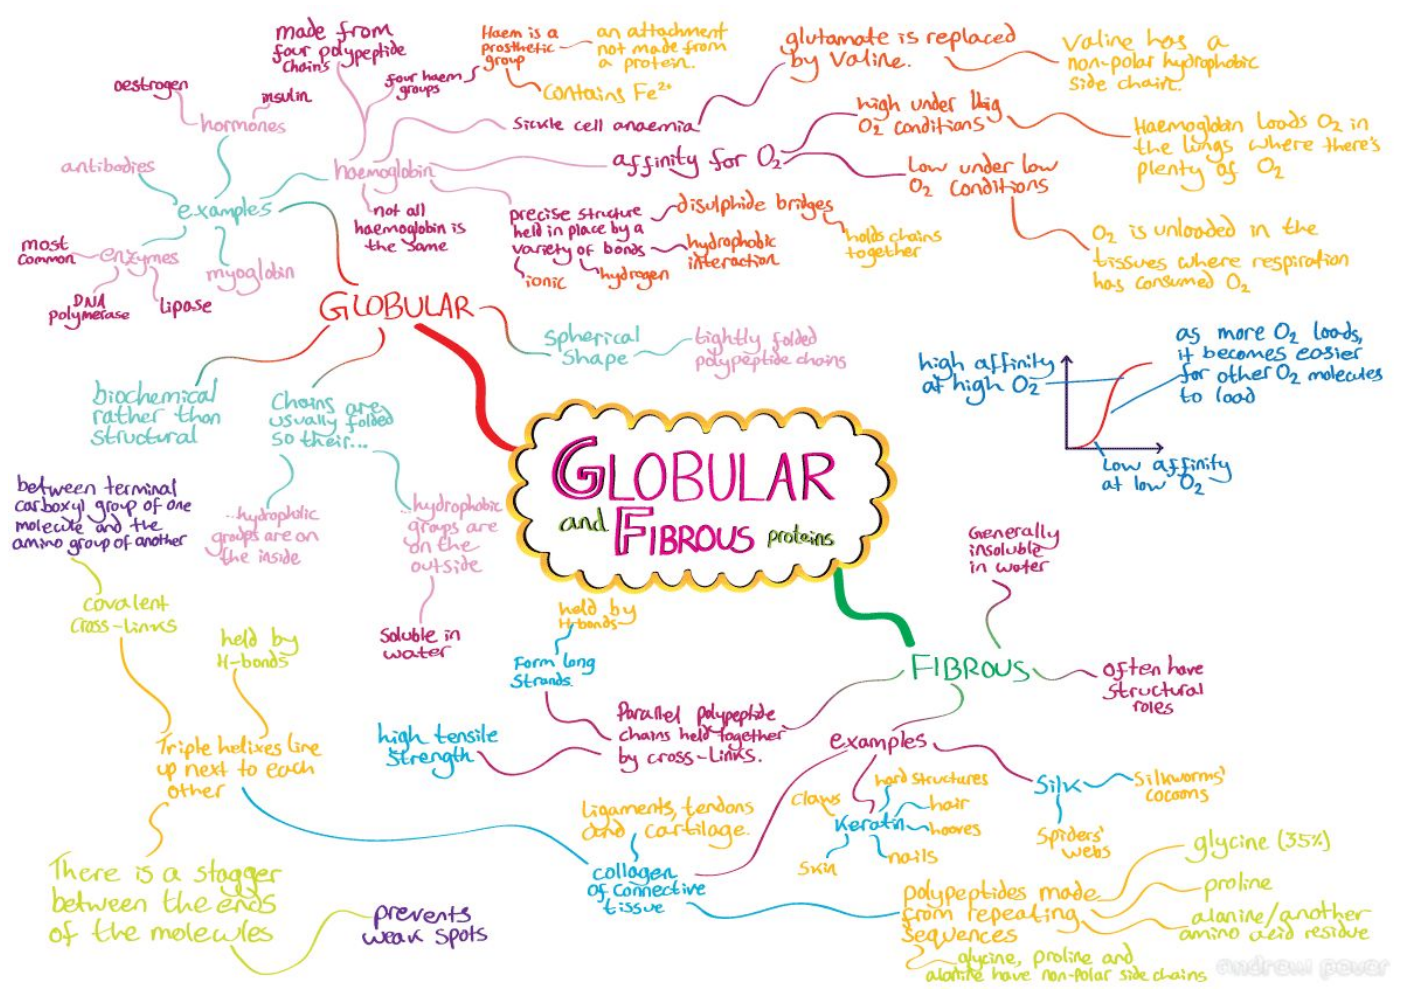 GLOBULAR
and FIBROUS proteins
GLOBULAR
examples
hormones
oestrogen
insulin
antibodies
enzymes
most
common
DNA
polymerase
lipase
myoglobin
haemoglobin
made from
four polypeptide
chains
four haem
groups
Haem is a
prosthetic
group
an attachment
not made from
a protein.
contains Fe²⁺
not all
haemoglobin is
the same
sickle cell anaemia
glutamate is replaced
by valine.
Valine has a
non-polar hydrophobic
side chain.
affinity for O₂
high under high
O₂ conditions
Haemoglobin loads O₂ in
the lungs where there's
plenty of O₂
Low under low
O₂ conditions
O₂ is unloaded in the
tissues where respiration
has consumed O₂
precise structure
held in place by a
variety of bonds
disulphide bridges
holds chains
together
hydrophobic
interaction
hydrogen
ionic
spherical
shape
tightly folded
polypeptide chains
biochemical
rather than
structural
Chains are
usually folded
so their...
...hydrophilic
groups are on
the inside
...hydrophobic
groups are
on the
outside
Soluble in
water
high affinity
at high O₂
as more O₂ loads,
it becomes easier
for other O₂ molecules
to load
Low affinity
at low O₂
FIBROUS
Generally
insoluble
in water
often have
structural
roles
Parallel polypeptide
chains held together
by cross-links.
Form long
Strands.
held by
H-bonds
high tensile
strength
examples
Silk
Silkworms'
cocoons
Spiders'
webs
Keratin
hard structures
hair
hooves
nails
skin
claws
collagen
of connective
tissue
Ligaments, tendons
and cartilage.
polypeptides made
from repeating
sequences
glycine (35%)
proline
alanine/another
amino acid residue
glycine, proline and
alanine have non-polar side chains
Triple helixes line
up next to each
other
held by
H-bonds
covalent
cross-links
between terminal
carboxyl group of one
molecule and the
amino group of another
There is a stagger
between the ends
of the molecules
prevents
weak spots
andrew power